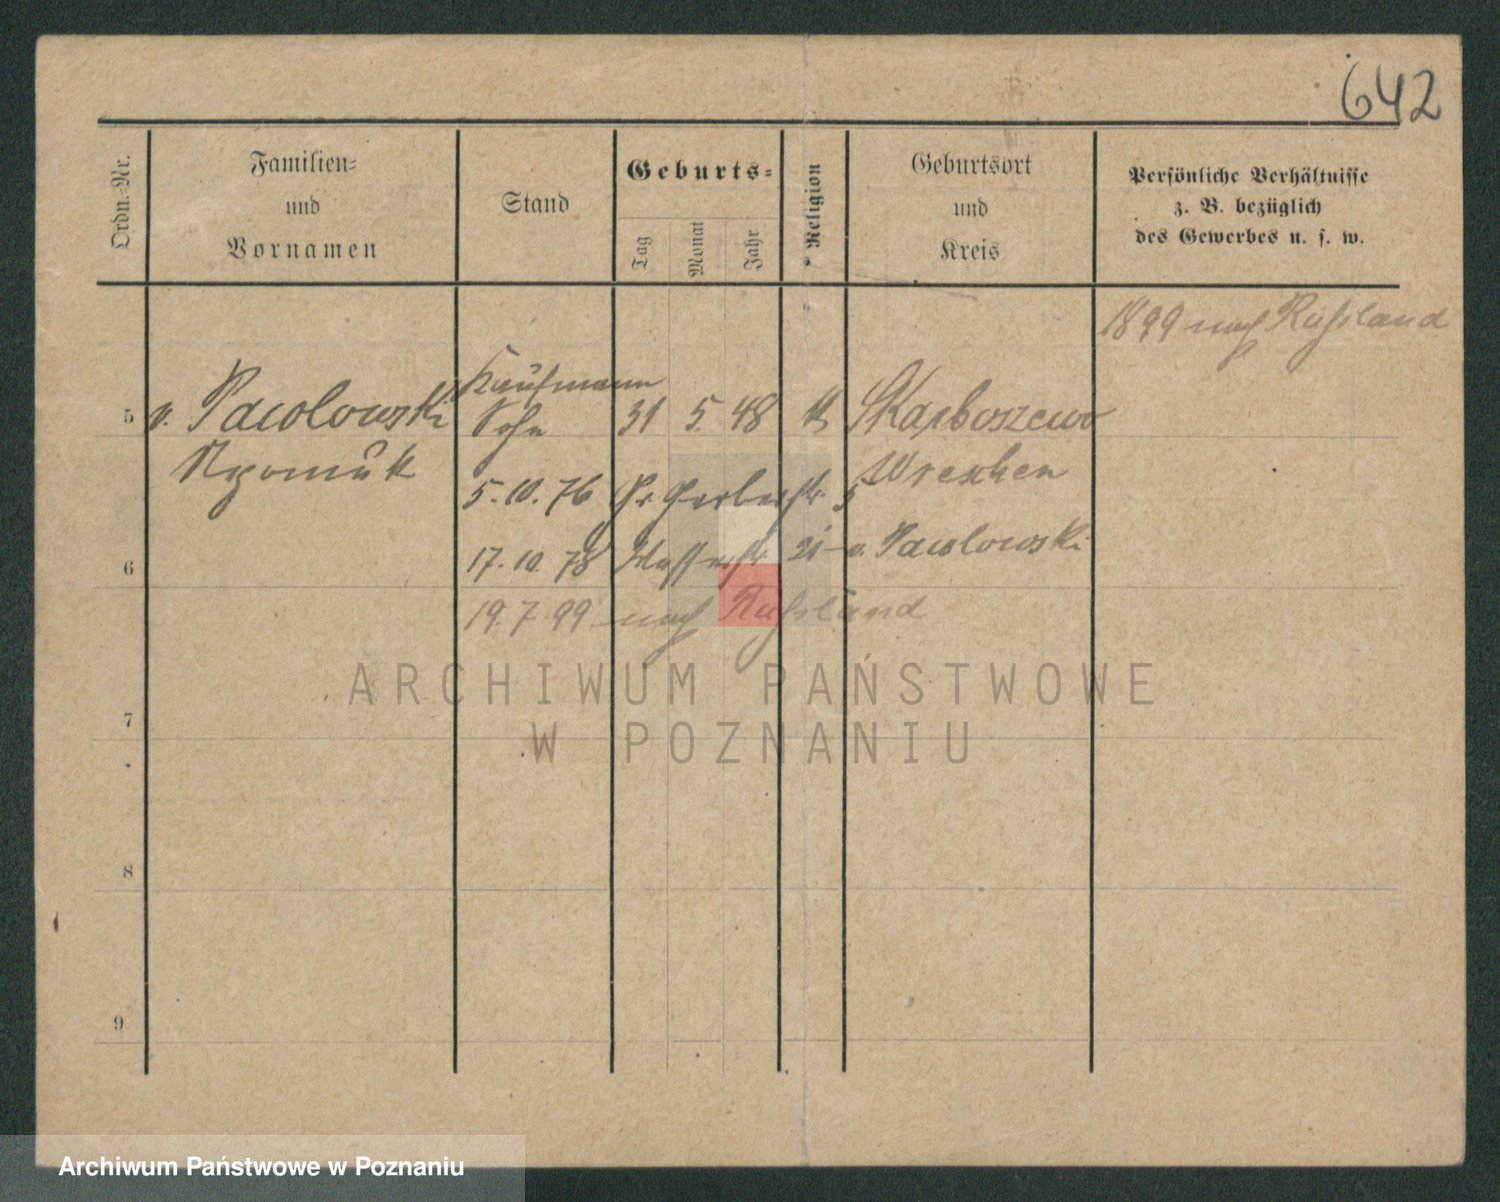 642
Ordn.-Nr.
Familien-
und
Vornamen
Stand
Geburts-
Tag
Monat
Jahr
Religion
Geburtsort
und
Kreis
Persönliche Verhältnisse
z. B. bezüglich
des Gewerbes u. s. w.
1899 nach Russland
5 v. Pacolowski Kaufmann
Sohn 31 5. 48 k Skarboszewo
Npomuk Wreschen
5. 10. 76 Gr. Gerberstr. 5
6 17. 10. 78 Wasserstr. v. Pacolowski
19. 7. 99 nach Russland
7
8
9
ARCHIWUM PAŃSTWOWE
W POZNANIU
Archiwum Państwowe w Poznaniu